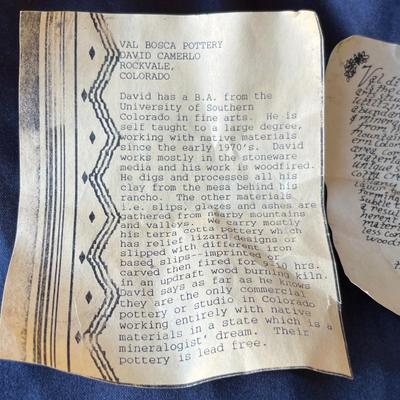 VAL BOSCA POTTERY
DAVID CAMERLO
ROCKVALE,
COLORADO
David has a B.A. from the
University of Southern
Colorado in fine arts. He is
self taught to a large degree,
working with native materials
since the early 1970's. David
works mostly in the stoneware
media and his work is woodfired.
He digs and processes all his
clay from the mesa behind his
rancho. The other materials
i.e. slips, glazes and ashes are
gathered from nearby mountains
and valleys. We carry mostly
his terra cotta pottery which
has relief lizard designs or
slipped with different iron
based slips--imprinted or
carved then fired for 9-10 hrs.
in an updraft wood burning kiln.
David says as far as he knows
they are the only commercial
pottery or studio in Colorado
working entirely with native
materials in a state which is a
mineralogist' dream. Their
pottery is lead free.
Val di